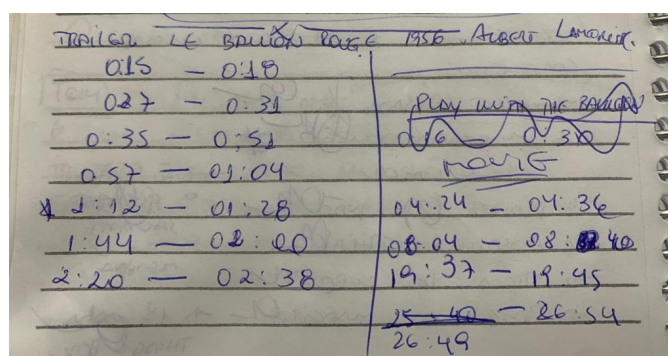 TRAILER LE BALLON ROUGE 1956 ALBERT LAMORISSE.
0:15 — 0:18
0:27 — 0:31
0:35 — 0:51
0:57 — 01:04
1:12 — 01:28
1:44 — 02:00
2:20 — 02:38
PLAY WITH THE BALLOON
0:16 — 0:30
MOVIE
04:24 — 04:36
08:04 — 08:40
19:37 — 19:45
25:40 — 26:54
26:49